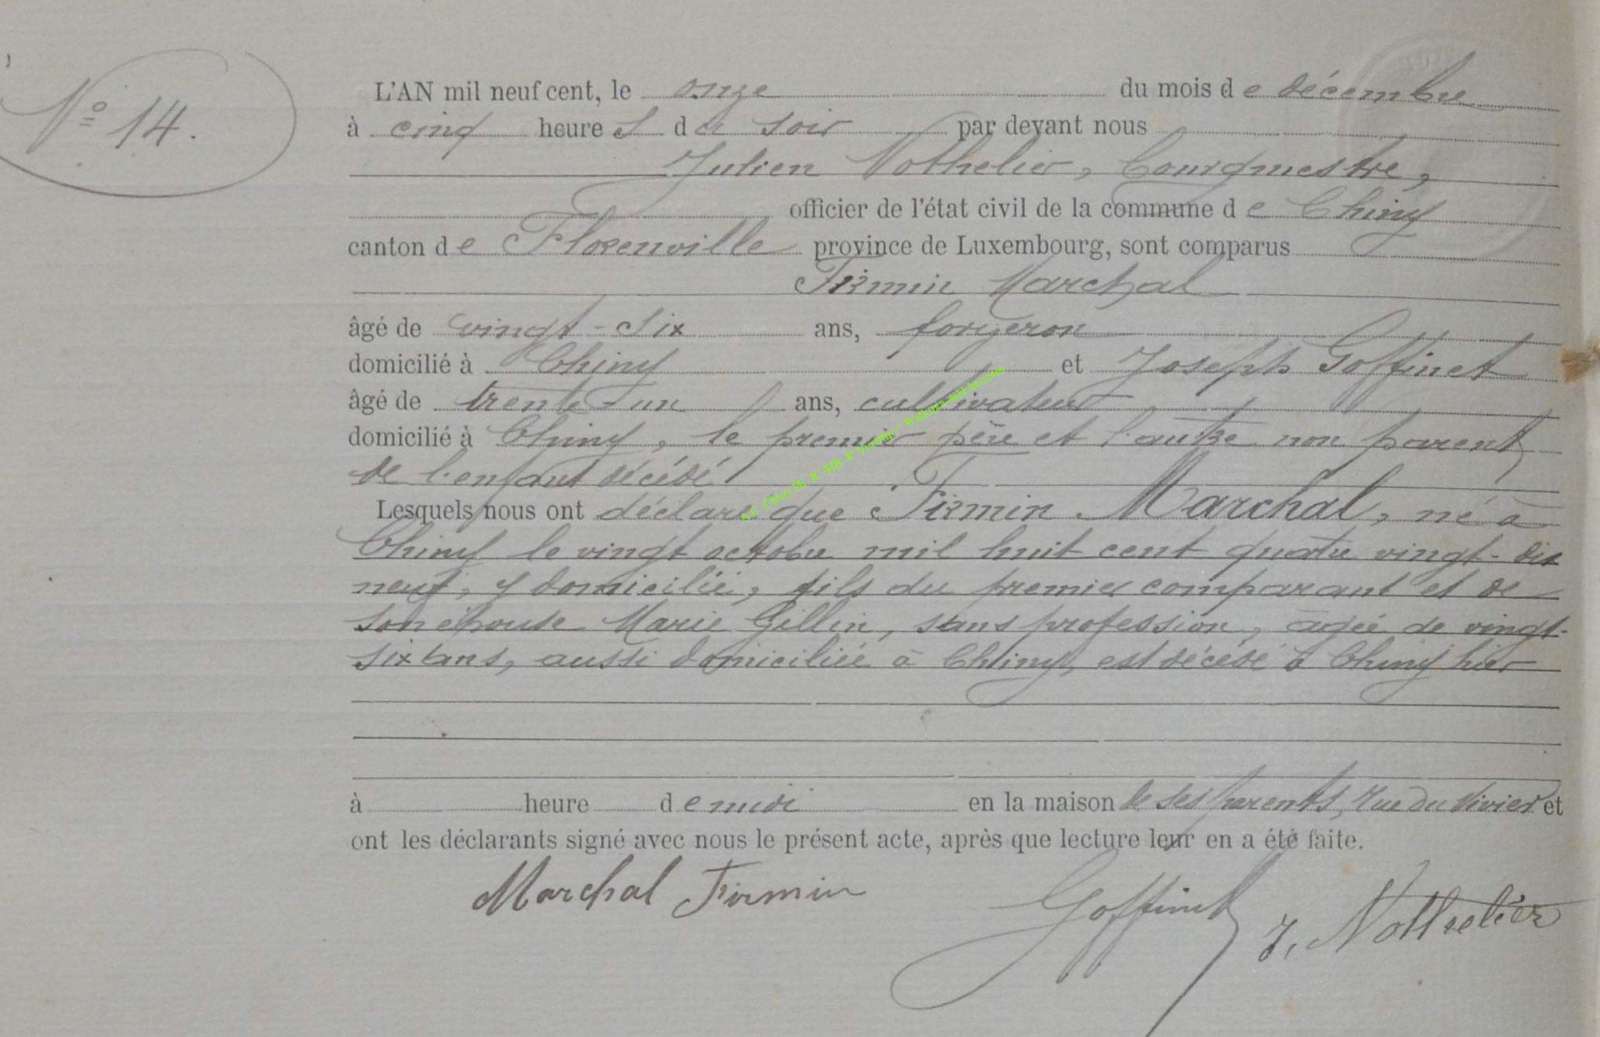 Nº 14.
L'AN mil neuf cent, le onze du mois de décembre
à cinq heures du soir par devant nous
Julien Nothelier, bourgmestre,
officier de l'état civil de la commune de Chiny
canton de Florenville province de Luxembourg, sont comparus
Firmin Marchal
âgé de vingt-six ans, forgeron
domicilié à Chiny et Joseph Goffinet
âgé de trente-un ans, cultivateur
domicilié à Chiny, le premier père et l'autre non parent
de l'enfant décédé
Lesquels nous ont déclaré que Firmin Marchal, né à
Chiny le vingt octobre mil huit cent quatre vingt-dix
neuf, y domicilié, fils du premier comparant et de
son épouse Marie Gillin, sans profession, âgée de vingt-
six ans, aussi domiciliée à Chiny, est décédé à Chiny hier
à heure de midi en la maison de ses parents, rue du Vivier et
ont les déclarants signé avec nous le présent acte, après que lecture leur en a été faite.
Marchal Firmin
Goffinet
J. Nothelier